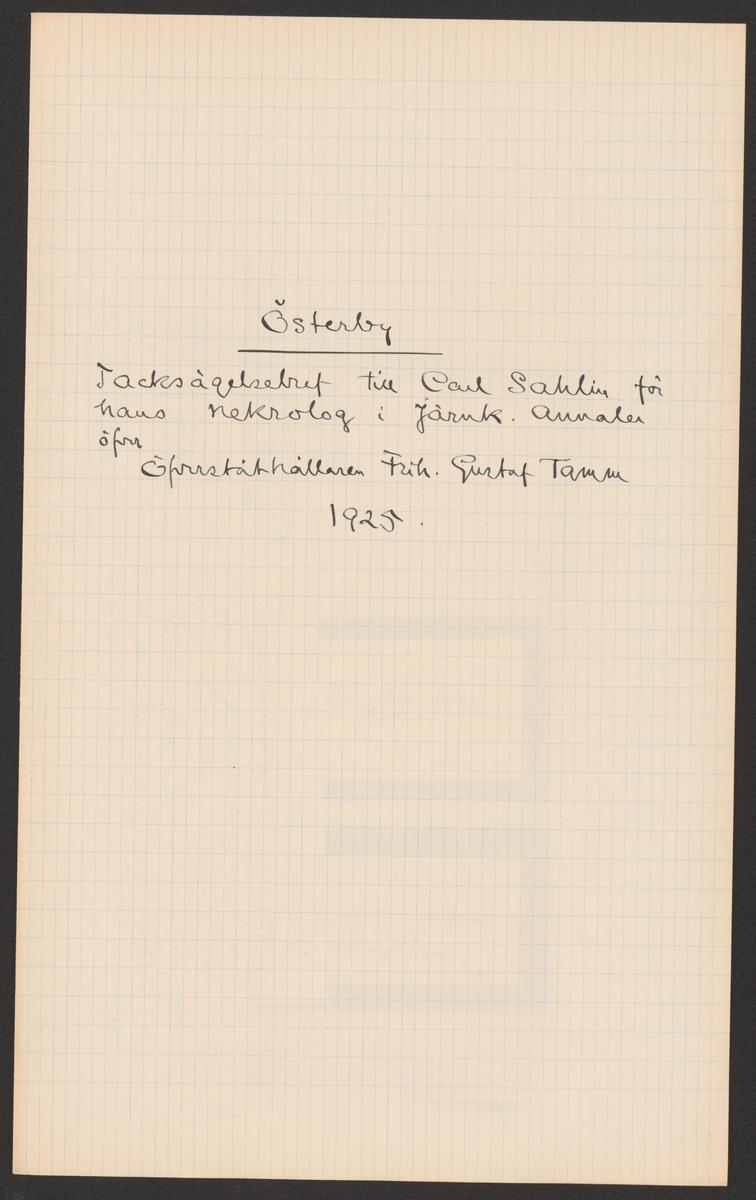 Österby
Tacksägelsebref till Carl Sahlin för
hans nekrolog i Järnk. Annaler
öfver
Öfverståthållaren Frih. Gustaf Tamm
1925.